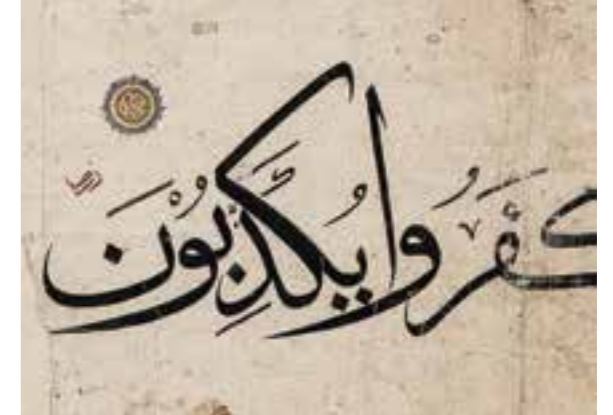 كَفَرُوا يُكَذِّبُوْنَ